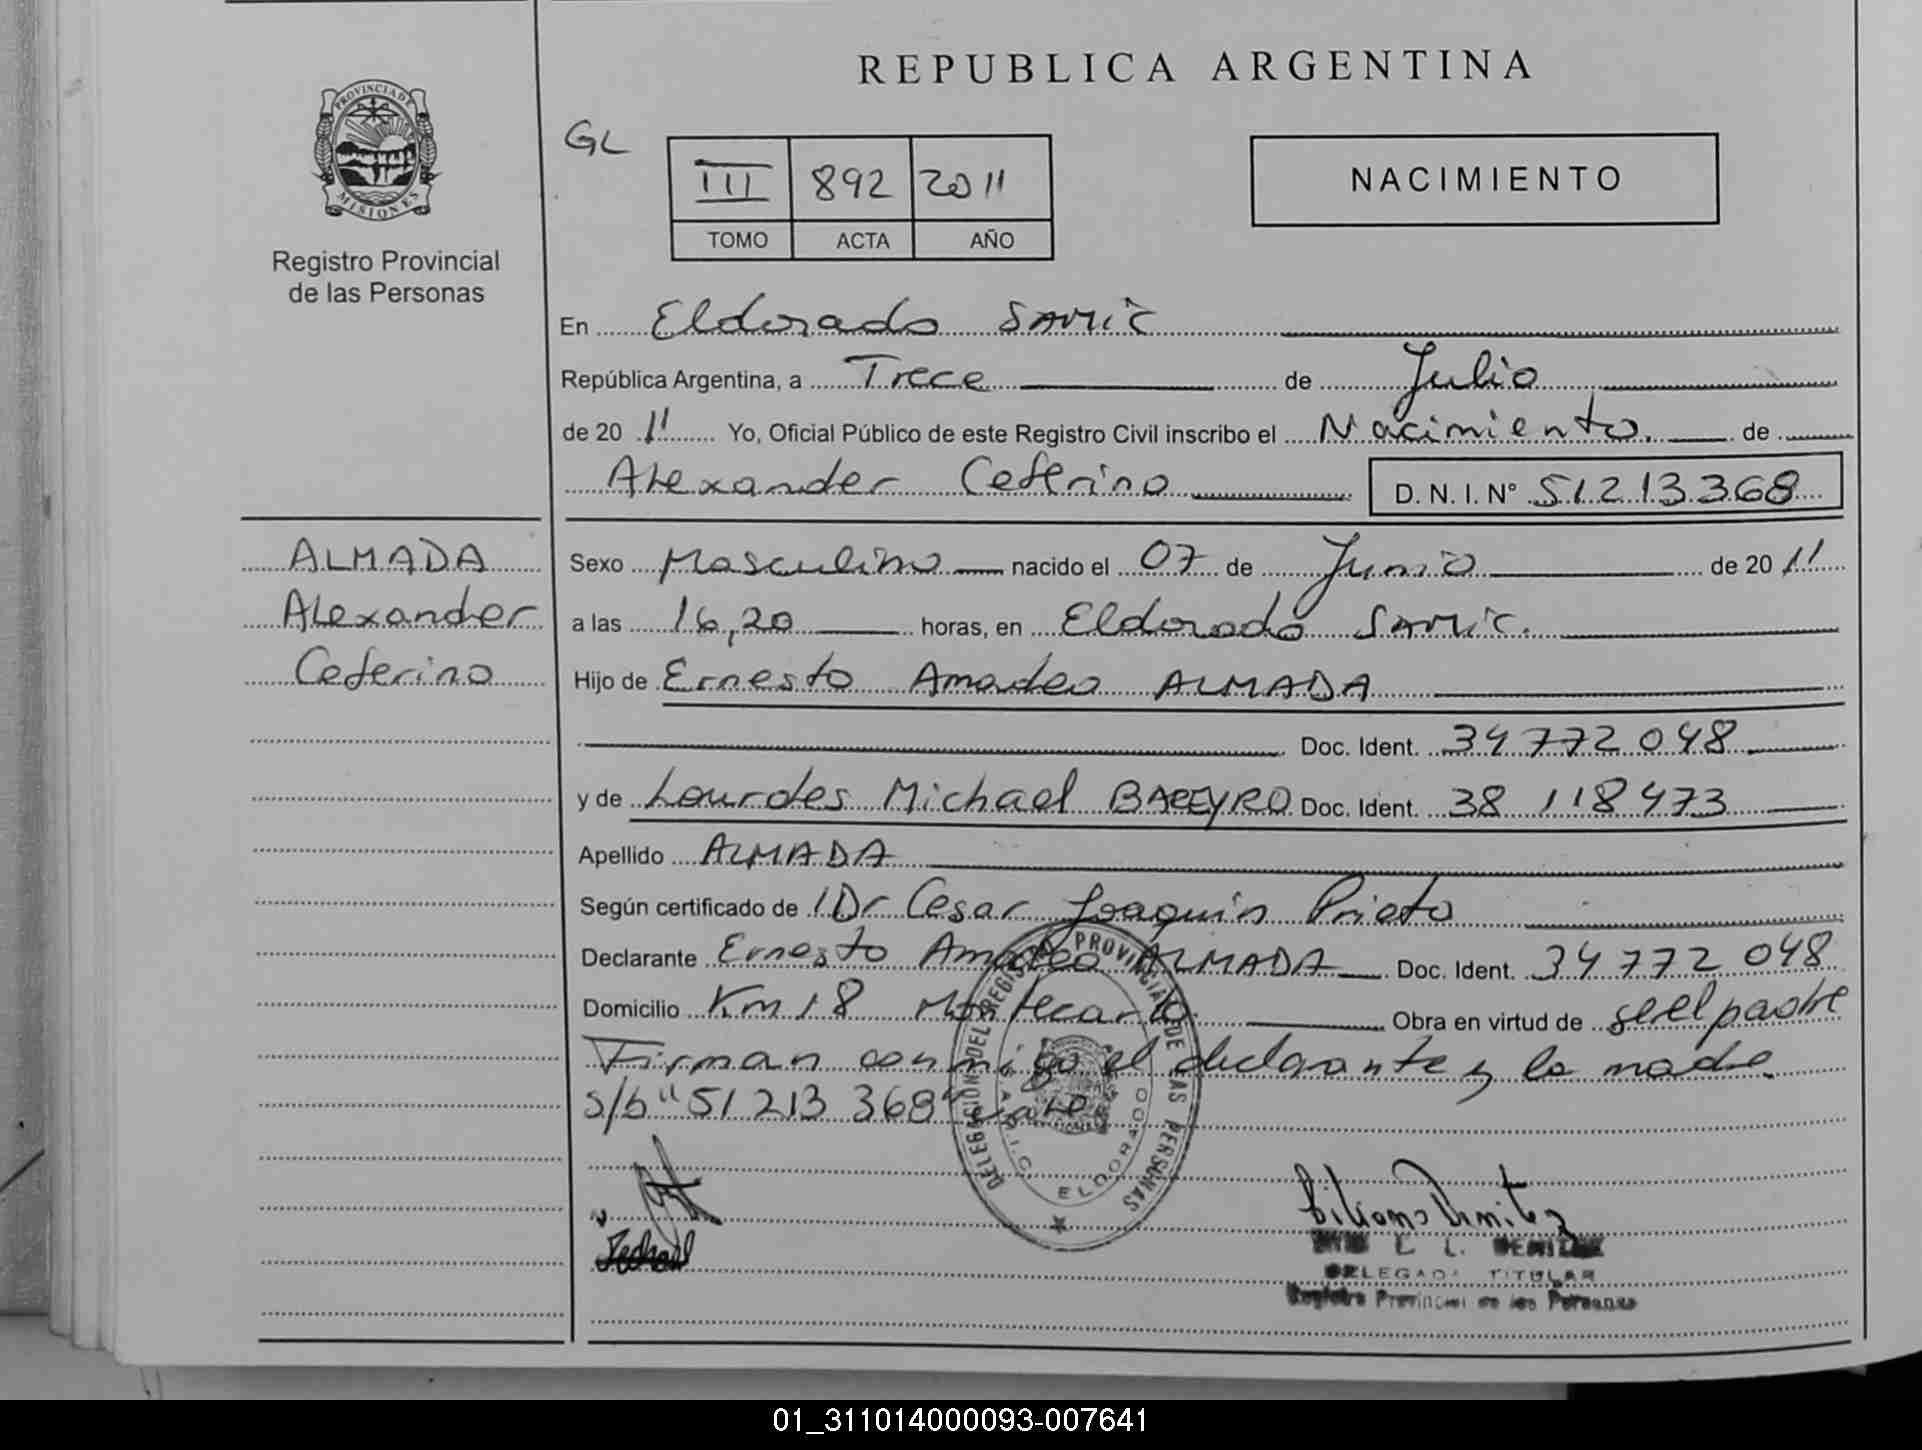 REPUBLICA ARGENTINA
PROVINCIA DE
MISIONES
Registro Provincial
de las Personas
GL
III 892 2011
TOMO ACTA AÑO
NACIMIENTO
En Eldorado SAMIC
República Argentina, a Trece de Julio
de 20 11 Yo, Oficial Público de este Registro Civil inscribo el Nacimiento. de
Alexander Ceferino D. N. I. N° 51213368
ALMADA
Alexander
Ceferino
Sexo Masculino nacido el 07 de Junio de 20 11
a las 16,20 horas, en Eldorado SAMIC.
Hijo de Ernesto Amadeo ALMADA
Doc. Ident. 34 772 048
y de Lourdes Michael BAREYRO Doc. Ident. 38 118 473
Apellido ALMADA
Según certificado de Dr Cesar Joaquin Prieto
Declarante Ernesto Amadeo ALMADA Doc. Ident. 34 772 048
Domicilio Km 18 Montecarlo. Obra en virtud de ser el padre
Firman conmigo el declarante y la madre.
s/b "51 213 368" vale
DELEGACION DEL REGISTRO PROVINCIAL DE LAS PERSONAS
S.A.M.I.C. ELDORADO
L. L. BENITEZ
DELEGADA TITULAR
Registro Provincial de las Personas
01_311014000093-007641